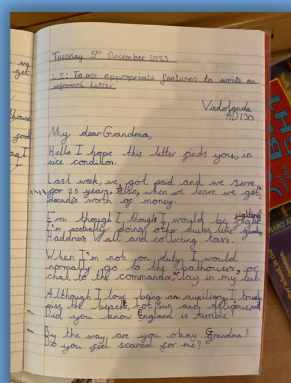 Tuesday 5th December 2023
L.I: To use appropriate features to write an
informal letter
Vindolanda
AD130
My dear Grandma,
Hello I hope this letter finds you in
nice condition.
Last week, we got paid and we serve
for 25 years. Also, when we leave we get
decades worth of money.
Even though I thought I would be fighting
I'm actually doing other duties like
Hadrians Wall and collecting taxes.
When I'm not on duty, I would
normally go to the bathouses or
chat to the commander. lay in my
Although I love being an auxiliary I truly
miss the sun and
Did you know England is terrible
By the way are you okay Grandma?
Do you feel scared for me?